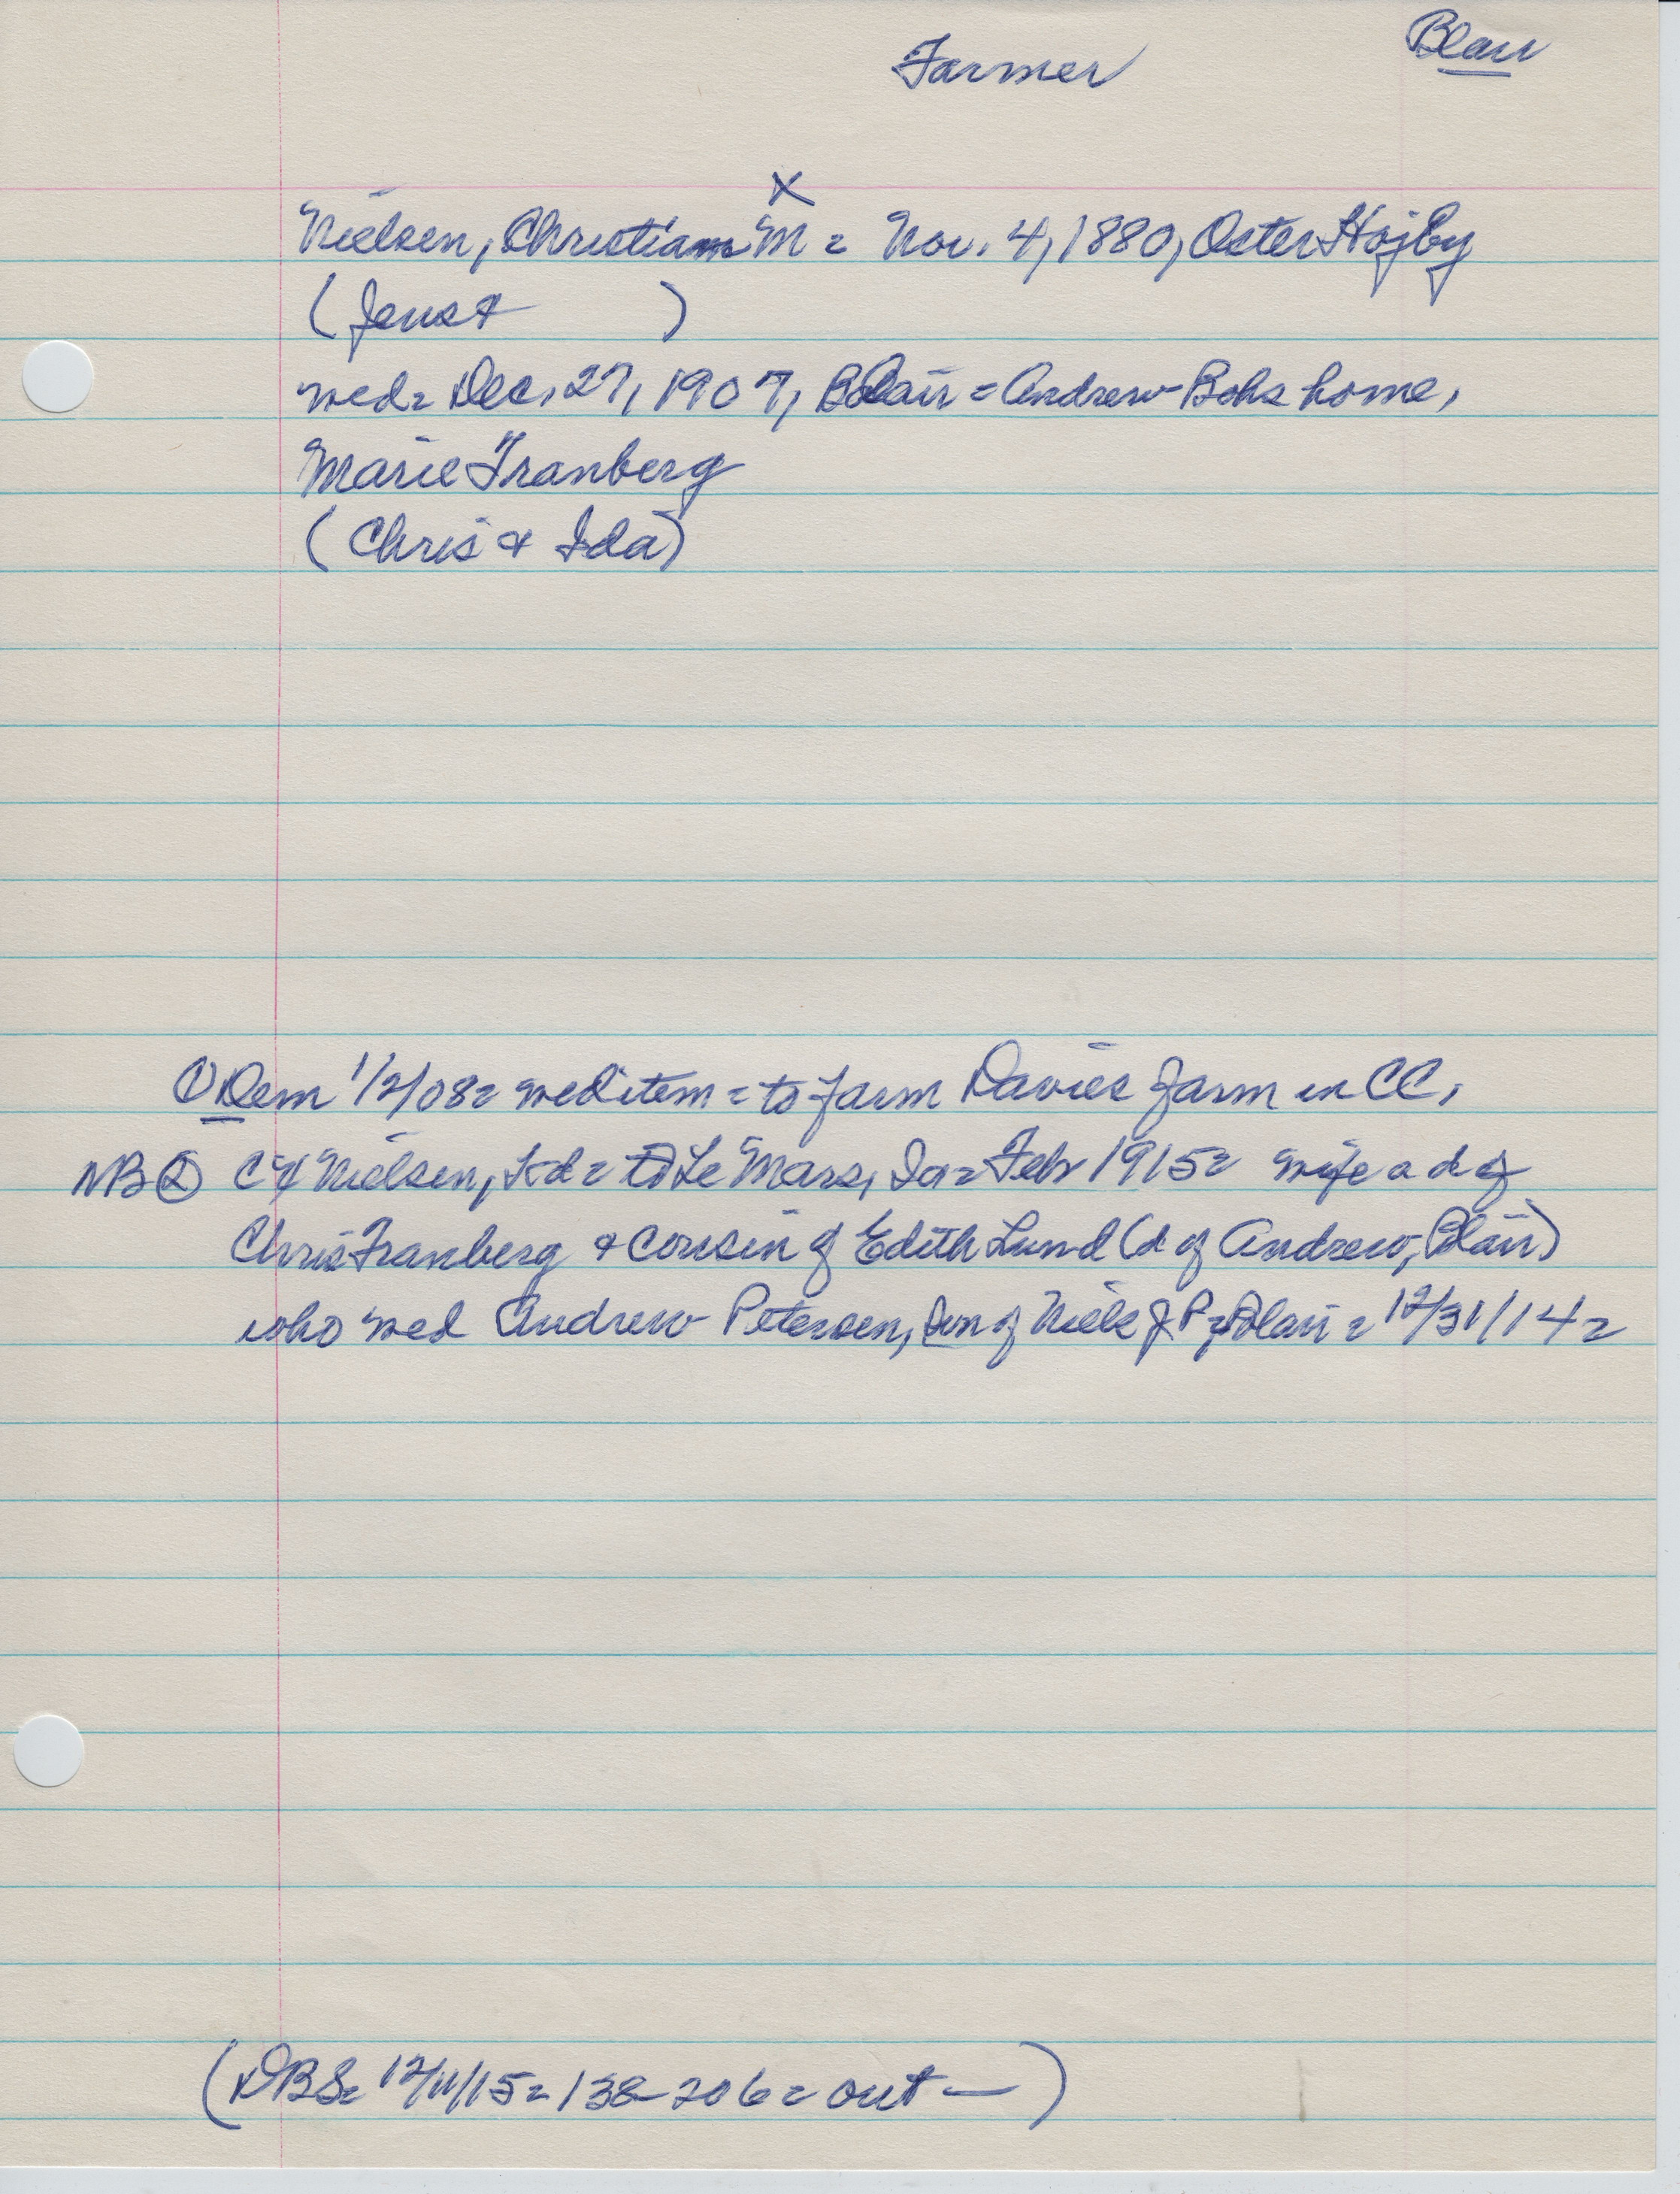 Farmer Blair
X
Nielsen, Christian M = Nov. 4, 1880, Oster Hojby
(Jens & )
wed = Dec. 27, 1907, Blair = Andrew Bohs home,
Marie Tranberg
(Chris & Ida)
① Dem 1/2/08 = wed item = to farm Davies farm in CC,
NB ② Nielsen, = to Le Mars, Ia = Feb 1915 = wife a d of
Chris Tranberg & cousin of Edith Lund (d of Andrew, Blair)
who wed Andrew Petersen, son of Niels J P, Blair = 12/31/14 =
(DBS = 12/11/15 = 138-206 = out —)